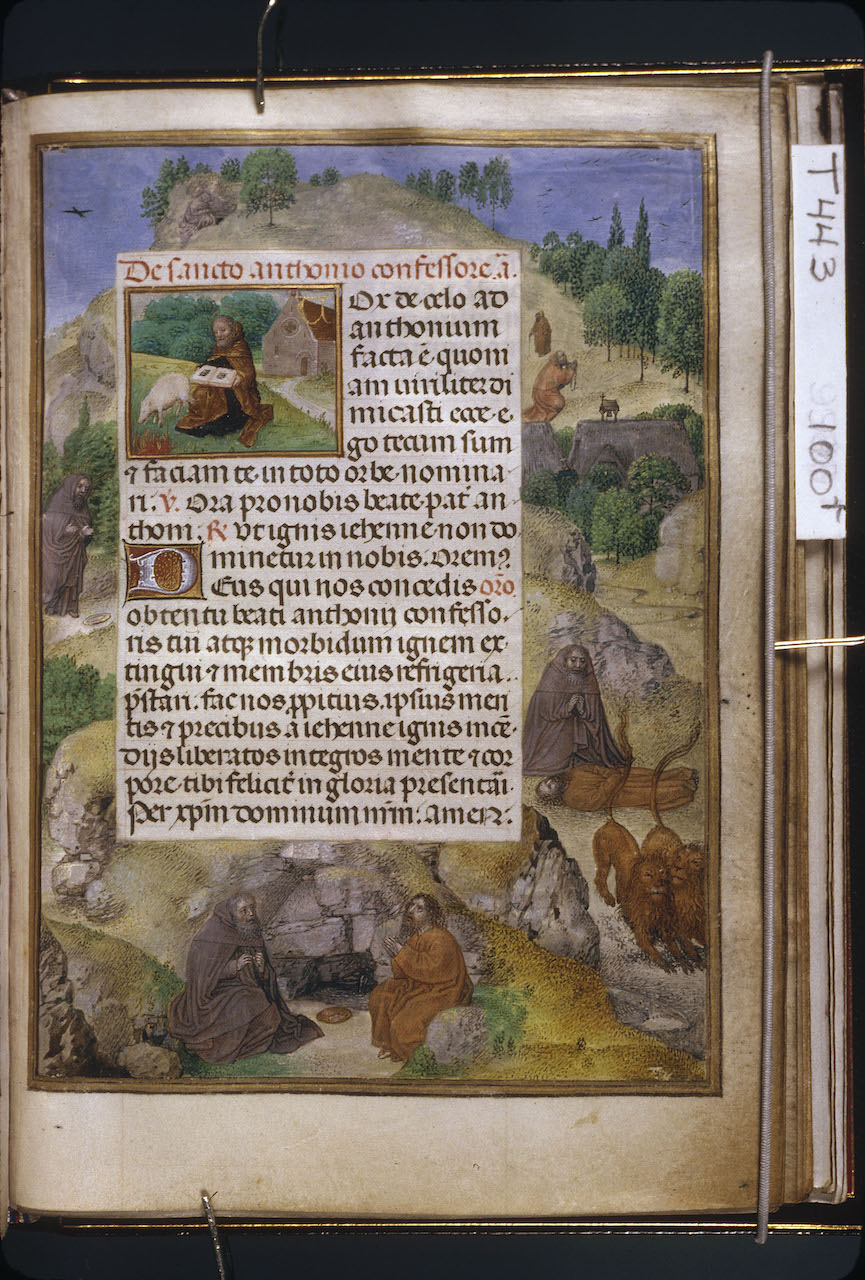 De sancto anthonio confessore. ā.
Ox de celo ad
anthonium
facta ē. quoni
am uiriliter di
micasti ecce. e
go tecum sum
⁊ faciam te in toto orbe. nomina
ri. V. Ora pro nobis beate. pat̄ an
thoni. R. vt ignis iehenne. non do
minetur in nobis. Orem⁹.
Deus qui nos concedis orō.
obtentu beati anthonij confesso.
ris tui atqꝫ morbidum ignem ex
tingui ⁊ membris eius refrigeria.
p̄stari. fac nos. ꝓpitius. ipsius meri
tis ⁊ precibus a iehenne ignis incē.
dijs liberatos integros mente ⁊ cor
pore. tibi felicit̄ in gloria presentāi.
Per xp̄m dominum nr̄m. amen.
T443